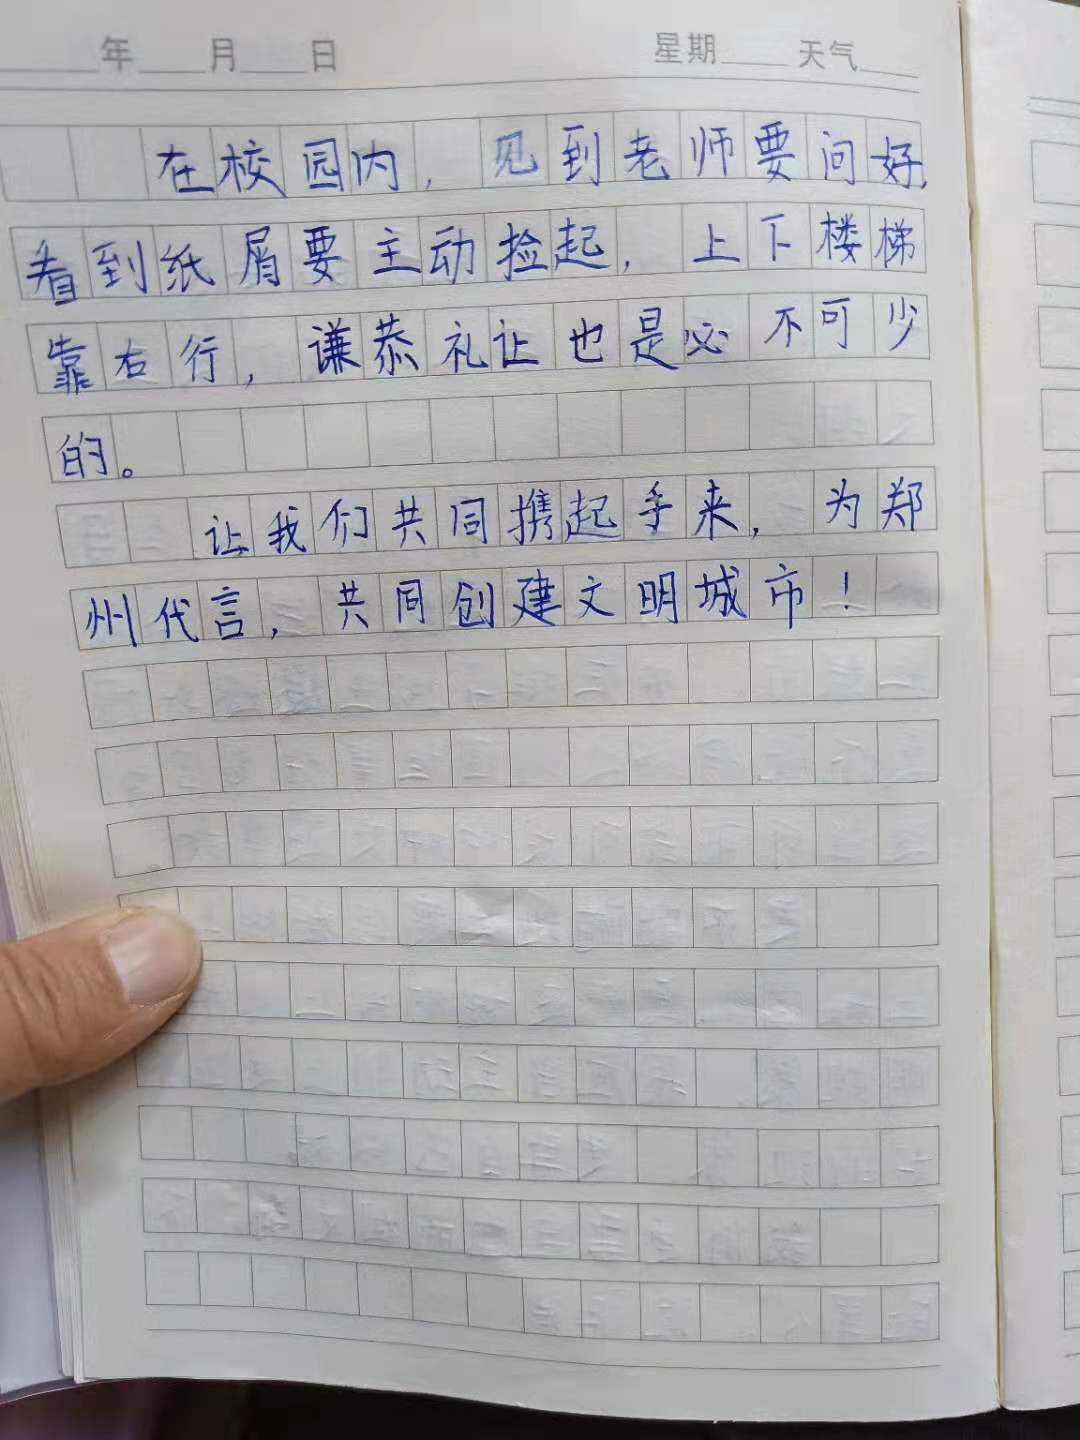 年 月 日 星期 天气
在校园内，见到老师要问好，
看到纸屑要主动捡起，上下楼梯
靠右行，谦恭礼让也是必不可少
的。
让我们共同携起手来，为郑
州代言，共同创建文明城市！